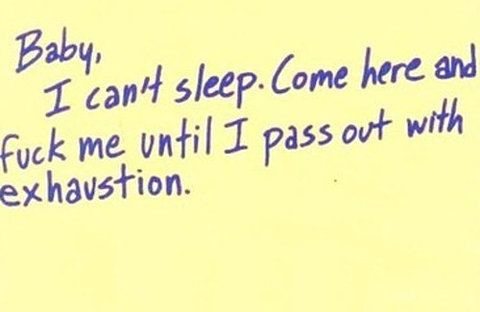 Baby,
I can't sleep. Come here and
fuck me until I pass out with
exhaustion.